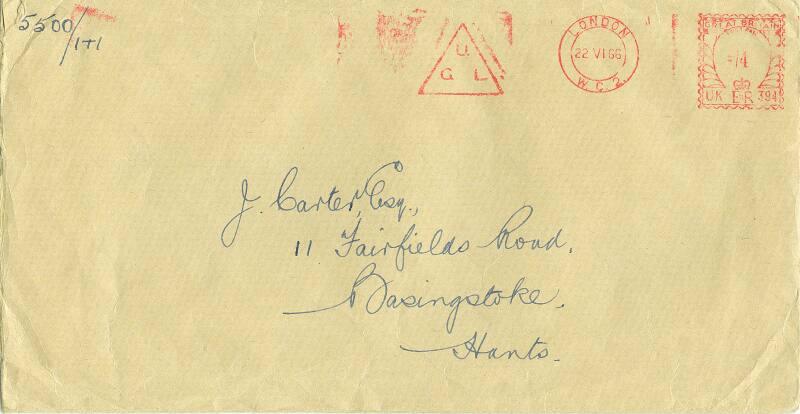 5500/1+1
U.
G L
LONDON
22 VI 66
W.C.2.
GREAT BRITAIN
=/4
UK E R 394
J. Carter, Esq.,
11 Fairfields Road,
Basingstoke,
Hants.